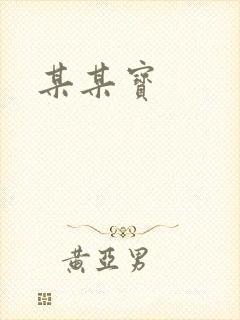 某某寶
黄亞男